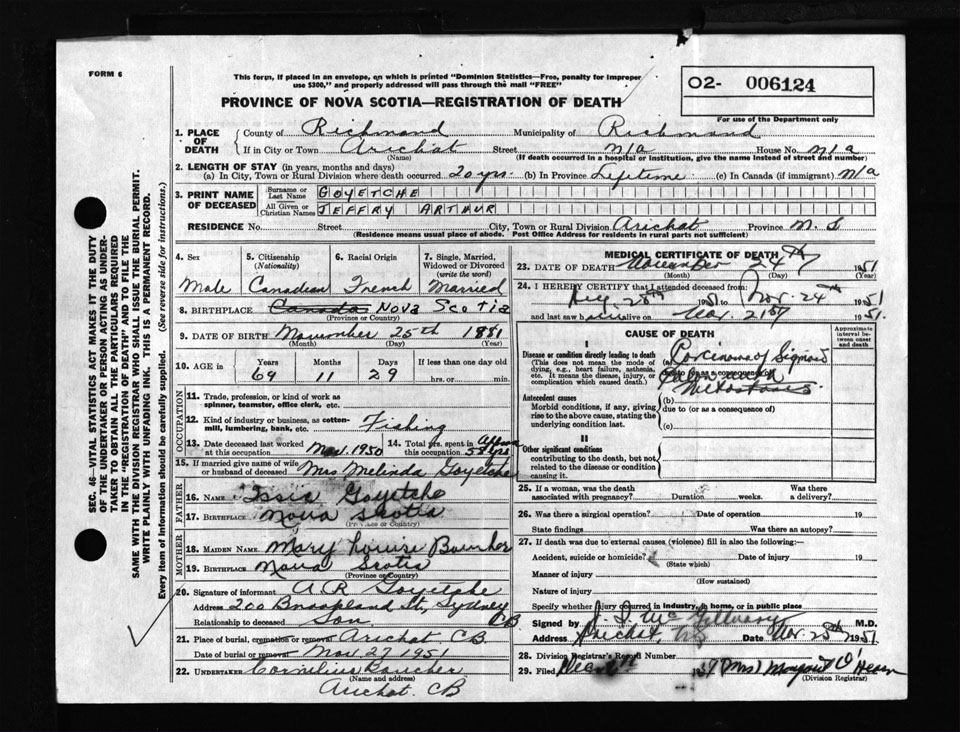 FORM 6
This form, if placed in an envelope, on which is printed "Dominion Statistics—Free, penalty for improper
use $300," and properly addressed will pass through the mail "FREE"
O2- 006124
PROVINCE OF NOVA SCOTIA—REGISTRATION OF DEATH
For use of the Department only
1. PLACE OF DEATH
County of Richmond Municipality of Richmond
If in City or Town Arichat Street N/a House No. N/a
(Name) (If death occurred in a hospital or institution, give the name instead of street and number)
2. LENGTH OF STAY (in years, months and days)
(a) In City, Town or Rural Division where death occurred 20 yrs. (b) In Province Lifetime (c) In Canada (if immigrant) N/a
3. PRINT NAME OF DECEASED
Surname or Last Name GOYETCHE
All Given or Christian Names JEFFRY ARTHUR
RESIDENCE No. Street City, Town or Rural Division Arichat Province N.S
(Residence means usual place of abode. Post Office Address for residents in rural parts not sufficient)
4. Sex Male
5. Citizenship (Nationality) Canadian
6. Racial Origin French
7. Single, Married, Widowed or Divorced (write the word) Married
8. BIRTHPLACE Canada Nova Scotia
(Province or Country)
9. DATE OF BIRTH November 25th 1881
(Month) (Day) (Year)
10. AGE Years 69 Months 11 Days 29 If less than one day old
hrs. or min.
OCCUPATION
11. Trade, profession, or kind of work as
spinner, teamster, office clerk, etc.
12. Kind of industry or business, as cotton-
mill, lumbering, bank, etc. Fishing
13. Date deceased last worked
at this occupation Nov. 1950
14. Total yrs. spent in
this occupation 55 yrs
15. If married give name of wife
or husband of deceased Mrs Melinda Goyetche
FATHER
16. NAME Goyetche
17. BIRTHPLACE Nova Scotia
(Province or Country)
MOTHER
18. MAIDEN NAME Mary Louise Boucher
19. BIRTHPLACE Nova Scotia
(Province or Country)
20. Signature of informant A R Goyetche
Address 200 St, Sydney CB
Relationship to deceased Son
21. Place of burial, cremation or removal Arichat CB
Date of burial or removal Nov 27 1951
22. UNDERTAKER Cornelius Boucher
(Name and address)
Arichat. CB
MEDICAL CERTIFICATE OF DEATH
23. DATE OF DEATH November 24th 1951
(Month) (Day) (Year)
24. I HEREBY CERTIFY that I attended deceased from:
28th 1951 to Nov. 24th 1951
and last saw h alive on Nov. 21st 1951.
CAUSE OF DEATH
Approximate interval between onset and death
I
Disease or condition directly leading to death
(This does not mean the mode of
dying, e.g., heart failure, asthenia,
etc. It means the disease, injury, or
complication which caused death.)
Carcinoma of Sigmoid
due to (or as a consequence of)
Colon with
Metastases
Antecedent causes
Morbid conditions, if any, giving
rise to the above cause, stating the
underlying condition last.
(b)
due to (or as a consequence of)
(c)
II
Other significant conditions
contributing to the death, but not
related to the disease or condition
causing it.
25. If a woman, was the death
associated with pregnancy? Duration weeks. Was there
a delivery?
26. Was there a surgical operation? Date of operation 19
State findings Was there an autopsy?
27. If death was due to external causes (violence) fill in also the following:—
Accident, suicide or homicide? Date of injury 19
(State which)
Manner of injury
(How sustained)
Nature of injury
Specify whether injury occurred in industry, in home, or in public place
Signed by McGillvary M.D.
Address Arichat, NS Date Nov. 25th 1951
28. Division Registrar's Record Number
29. Filed Mrs Margaret O'Hearn
(Division Registrar)
SEC. 46—VITAL STATISTICS ACT MAKES IT THE DUTY
OF THE UNDERTAKER OR PERSON ACTING AS UNDER-
TAKER TO OBTAIN ALL THE PARTICULARS REQUIRED
IN THE "REGISTRATION OF DEATH" AND TO FILE THE
SAME WITH THE DIVISION REGISTRAR WHO SHALL ISSUE THE BURIAL PERMIT.
WRITE PLAINLY WITH UNFADING INK. THIS IS A PERMANENT RECORD.
Every item of information should be carefully supplied. (See reverse side for instructions.)